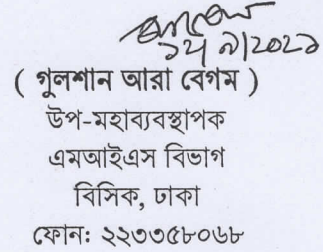 ১৫/৯/২০২১
( গুলশান আরা বেগম )
উপ-মহাব্যবস্থাপক
এমআইএস বিভাগ
বিসিক, ঢাকা
ফোন: ২২৩৩৫৮০৬৮